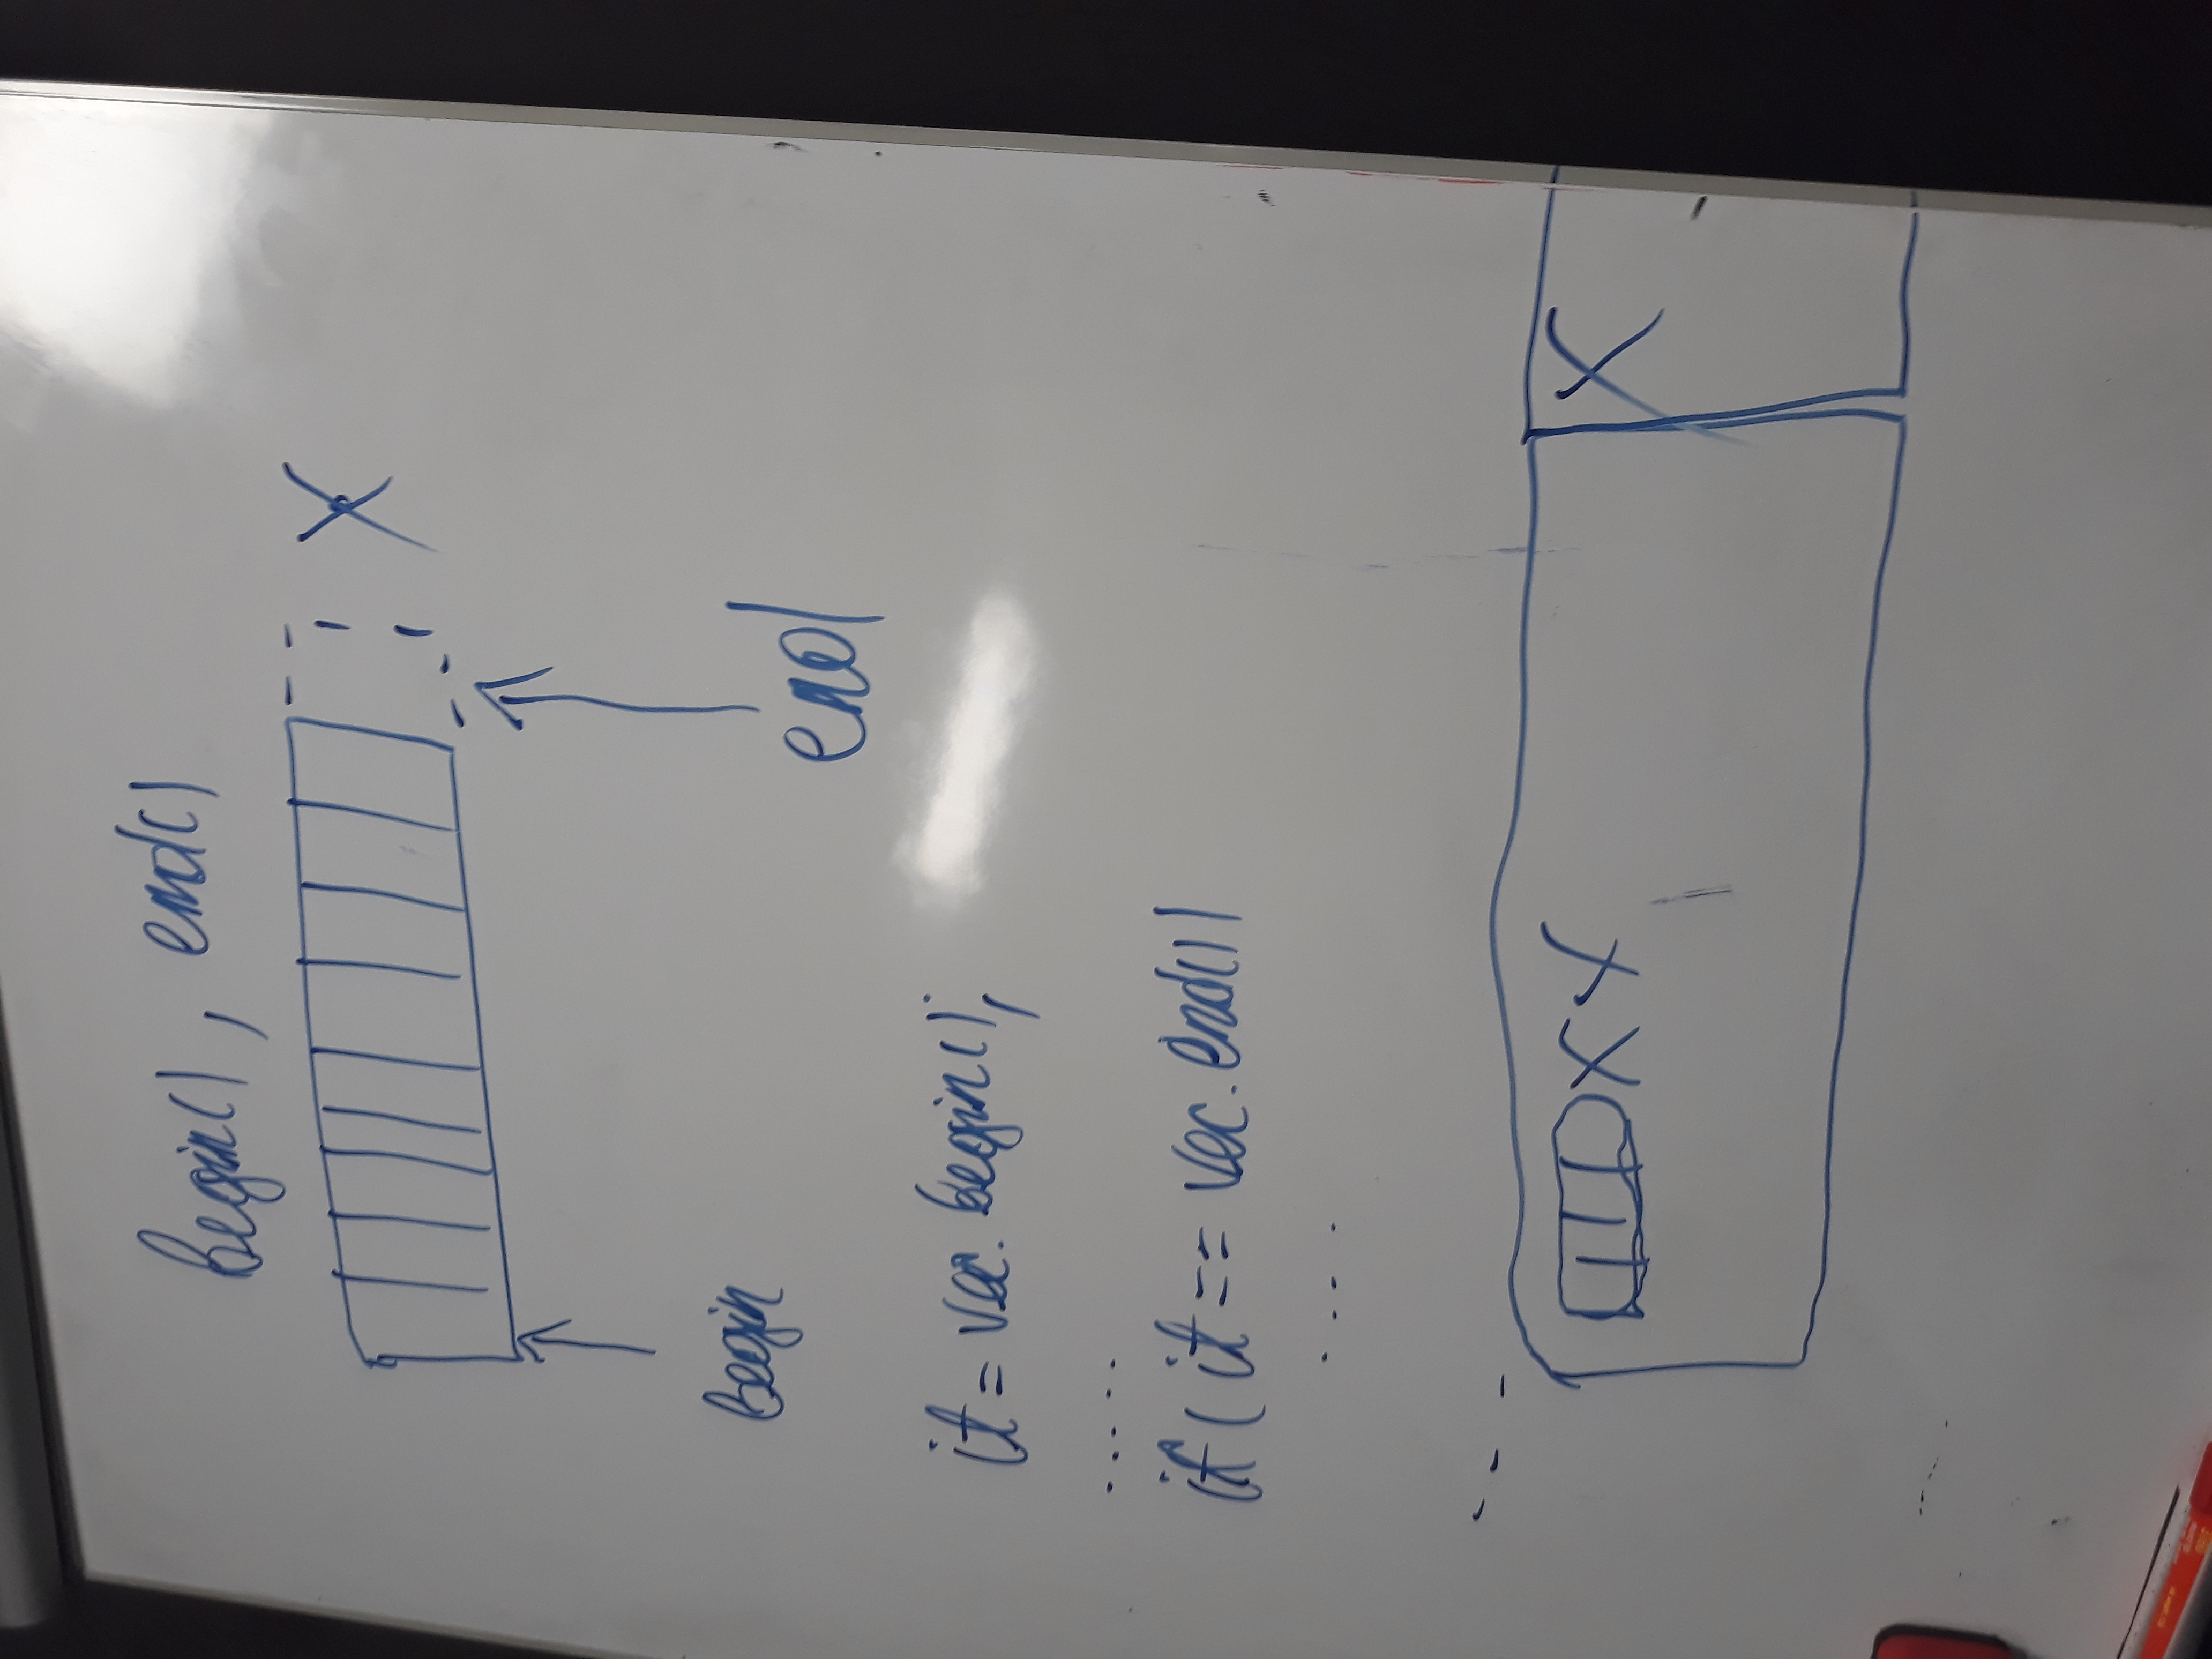 begin(), end()
X
begin
end
it = vec.begin();
.....
if ( it == vec.end())
....
- - -
X X
X